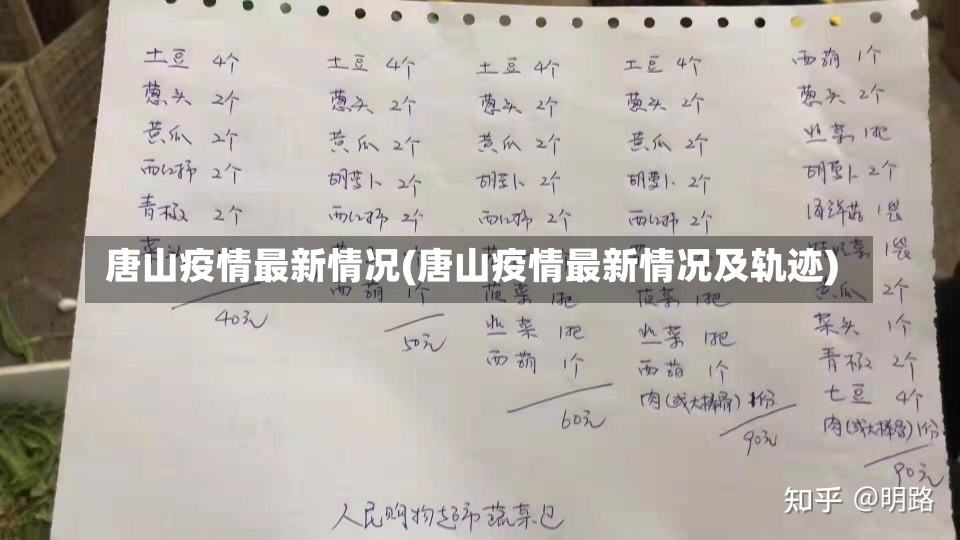 土豆 4个
葱头 2个
黄瓜 2个
西红柿 2个
青椒 2个
40元
土豆 4个
葱头 2个
黄瓜 2个
胡萝卜 2个
西红柿 2个
西葫 1个
50元
土豆 4个
葱头 2个
黄瓜 2个
胡萝卜 2个
西红柿 2个
菠菜 1把
韭菜 1把
西葫 1个
60元
土豆 4个
葱头 2个
黄瓜 2个
胡萝卜 2个
西红柿 2个
菠菜 1把
韭菜 1把
西葫 1个
肉(或大棒骨) 1份
90元
西葫 1个
葱头 2个
韭菜 1把
胡萝卜 2个
1袋
1袋
黄瓜 2个
菜头 1个
青椒 2个
土豆 4个
肉(或大棒骨) 1份
90元
唐山疫情最新情况(唐山疫情最新情况及轨迹)
人民购物超市蔬菜包
知乎 @明路